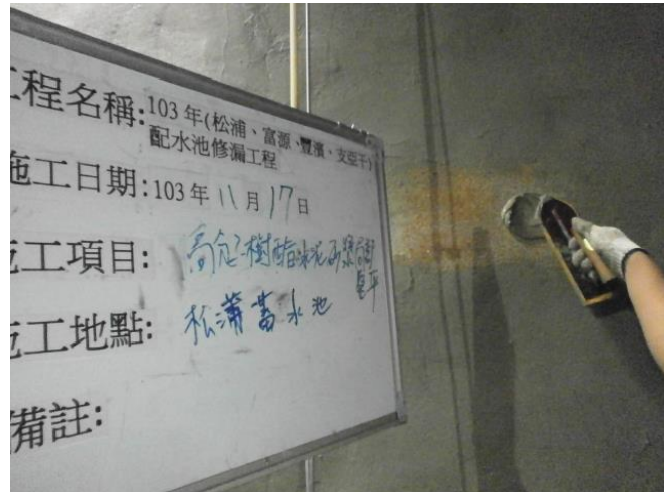 工程名稱:103年(松浦、富源、豐濱、支亞干)
配水池修漏工程
施工日期:103年11月17日
施工項目:高分樹酯水泥砂漿
施工地點:松浦蓄水池
備註: